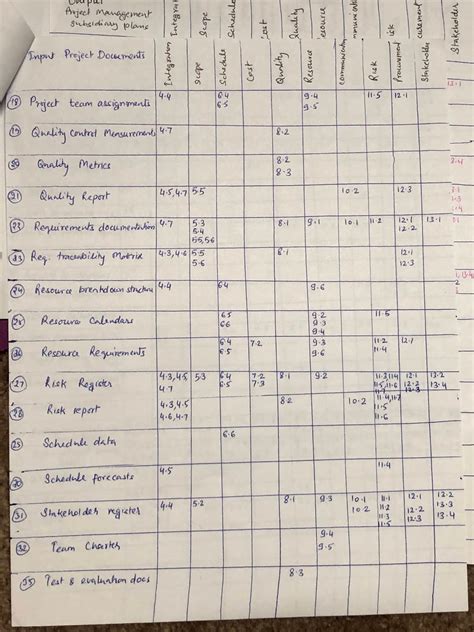 Output
Project Management
Subsidiary plans
Integrat
Scope
Schedule
Cost
Quality
Resource
Stakeholder
Input Project Documents
Integration
Scope
Schedule
Cost
Quality
Resource
Communicat
Risk
Procurement
Stakeholder
18 Project team assignments 4.4 6.4 9.4 11.5 12.1
6.5 9.5
19 Quality Control Measurements 4.7 8.2
20 Quality Metrics 8.2
8.3
21 Quality Report 4.5,4.7 5.5 10.2 12.3
22 Requirements documentation 4.7 5.3 8.1 9.1 10.1 11.2 12.1 13.1
5.4 12.2
5.5,5.6
23 Req. traceability Matrix 4.3,4.6 5.5 8.1 12.1
5.6 12.3
24 Resource breakdown structure 4.4 6.4 9.6
25 Resource Calendars 6.5 9.2 11.5
6.6 9.3
9.4
26 Resource Requirements 6.4 7.2 9.3 11.2 12.1
6.5 9.6 11.4
27 Risk Register 4.3,4.5 5.3 6.4 7.2 8.1 9.2 11.3,11.4 12.1 13.2
4.7 6.5 7.3 11.5,11.6 12.2 13.4
12.3
28 Risk report 4.3,4.5 8.2 10.2 11.4,11.7
4.6,4.7 11.5
11.6
29 Schedule data 6.6
30 Schedule forecasts 4.5 11.4
31 Stakeholder register 4.4 5.2 8.1 9.3 10.1 11.1 12.1 13.2
10.2 11.2 12.2 13.3
11.3 12.3 13.4
11.5
32 Team Charter 9.4
9.5
33 Test & evaluation docs 8.3